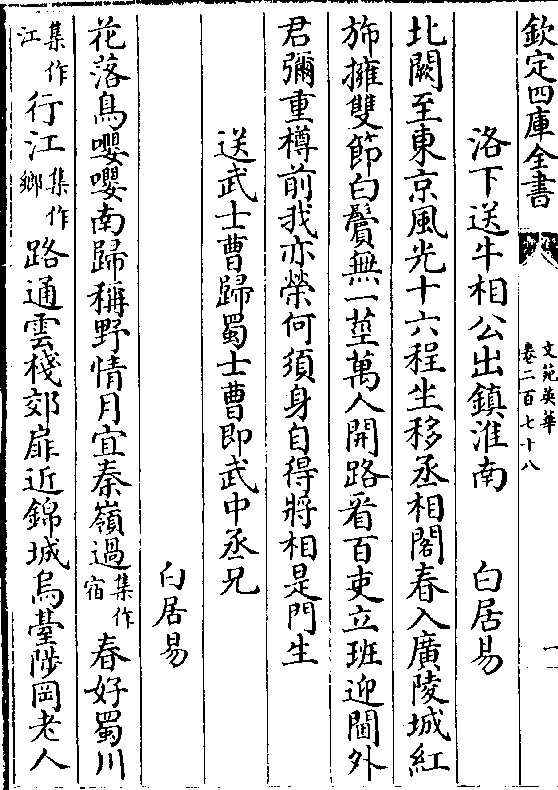 欽定四庫全書
文苑英華
卷二百七十八
洛下送牛相公出鎮淮南　白居易
北闕至東京風光十六程坐移丞相閤春入廣陵城紅
斾擁雙節白鬢無一莖萬人開路看百吏立班迎閫外
君彌重樽前我亦榮何須身自得將相是門生
送武士曹歸蜀士曹即武中丞兄
白居易
花落鳥嚶嚶南歸稱野情月宜秦嶺過集作宿春好蜀川
集作江行江集作鄉路通雲棧郊扉近錦城烏臺陟岡老人